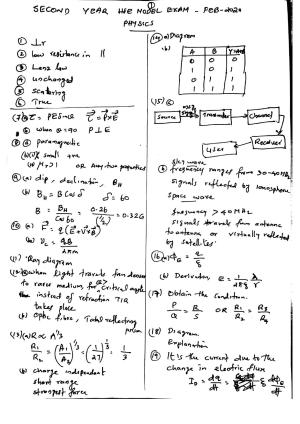 SECOND YEAR HSE MODEL EXAM - FEB-2020
PHYSICS
① ⊥r
② low resistance in ||
③ Lenz law
④ unchanged
⑤ scattering
⑥ True
(7) a) τ = PE sinθ τ⃗ = P⃗×E⃗
b when θ=90 P⊥E
8 a paramagnetic
(b) (i) small +ve
(ii) μr>1 OR Any two properties
9 (a) dip, declination, BH
(b) BH = B cosδ δ=60
B = BH/cos60 = 0.26/(1/2) = 0.52G
10 (a) F⃗ = q(E⃗+v⃗×B⃗)
(b) νc = qB/2πm
11) Ray diagram
12) a) when light travels from denser
to rarer medium for critical angle
instead of refraction TIR
takes place
(b) Optic fibre, Total reflecting
prism
(13) (a) R∝A^1/3
R1/R2 = (A1/A2)^1/3 = (1/27)^1/3 = 1/3
b) charge independent
short range
strongest force
(14) a) Diagram
b)
A B Y
0 0 0
0 1 1
1 0 1
1 1 1
(15) a)
Source Transmitter Channel
User Receiver
sky wave
b frequency ranges from 30-40MHz
signals reflected by ionosphere
space wave
frequency >40MHz
signals travels from antenna
to antenna or reflected
by satellites
16) a) ϕE = q/ε
(b) Derivation, E = 1/2πε λ/r
(17) Obtain the condition.
P/Q = R/S OR R1/R2 = R3/R4
(18) Diagram.
Explanation
(19) It is the current due to the
change in electric flux
ID = dq/dt = ε dϕE/dt